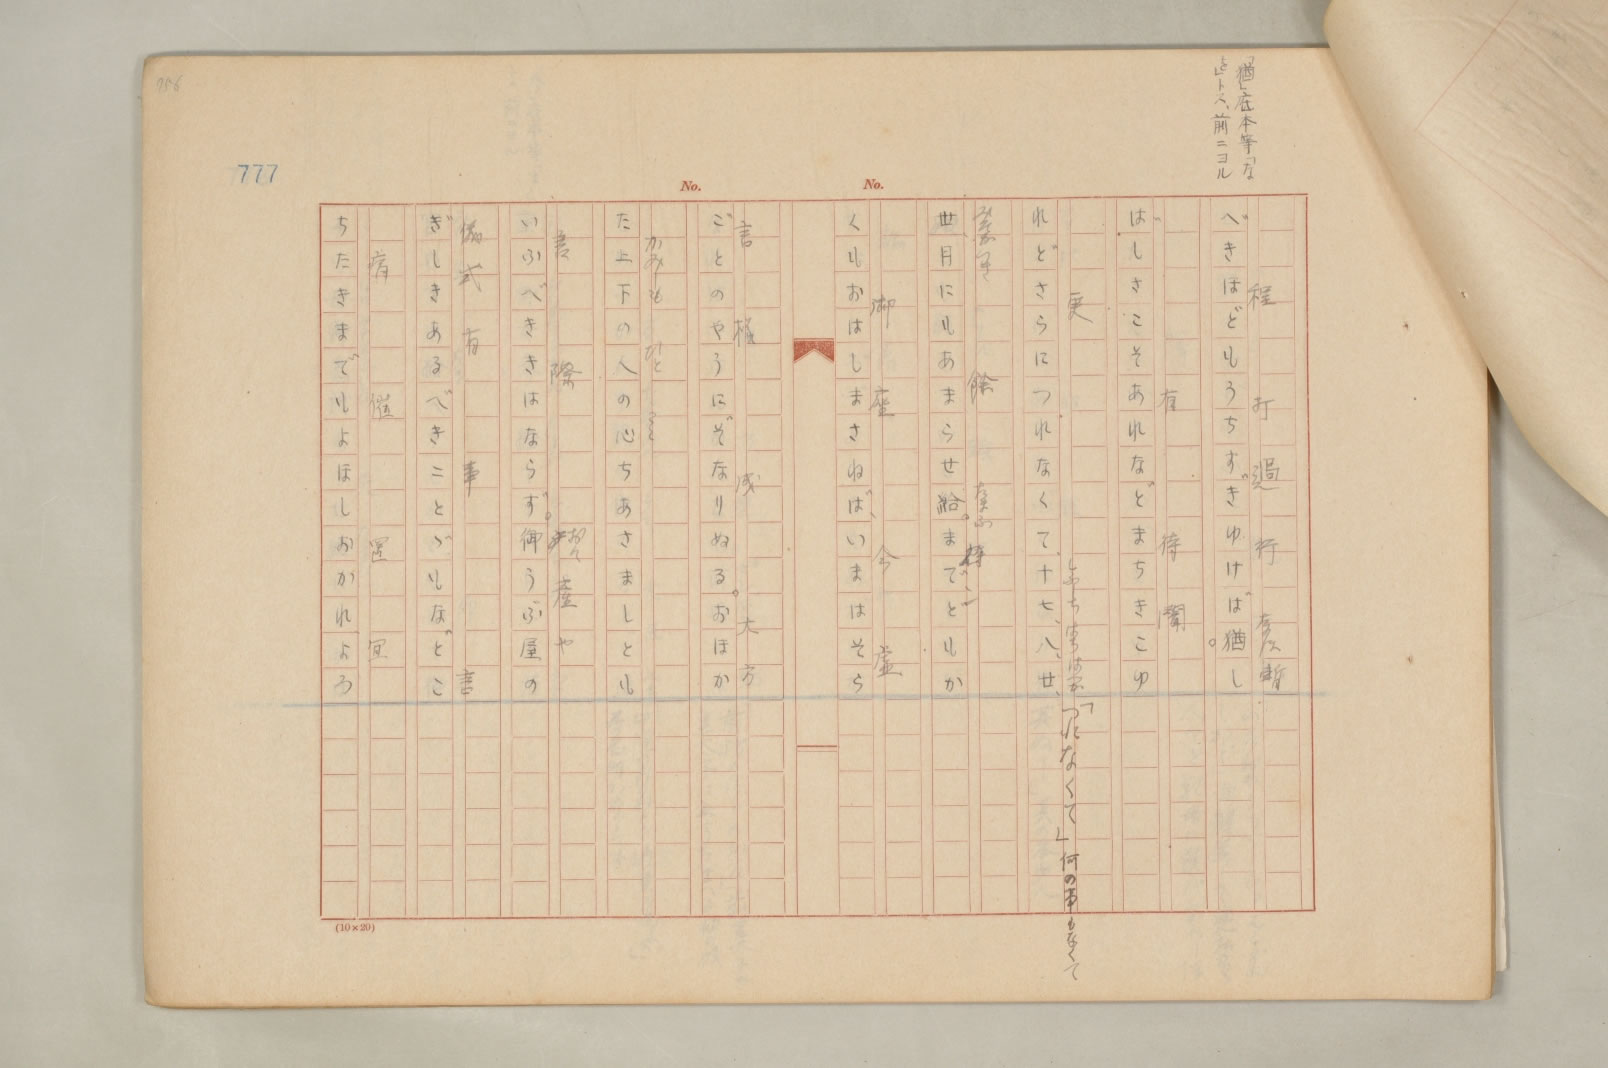 「猶」底本等「な
を」トス、前ニヨル
程 打 過 行 暫
べきほどもうちすぎゆけば猶し
有 待 聞
ばしさこそあれなどまちきこゆ
更
れどさらにつれなくて、十七、八、廿、
「つれなくて」何の事もなくて
余
廿月にもあまらせ給。までともか
御 座 今 虚
くもおはしまさねば、いまはそら
No.
No.
言 様 成 大方
ごとのやうにぞなりぬる。おほか
かみも ひと
た上下の人の心ちあさましとも
言 際 産や
いふべききはならず。御うぶ屋の
儀式 有 事 言
ぎしきあるべきことゞもなどこ
催
ちたきまでもよほしおかれ、よろ
777
756
(10×20)